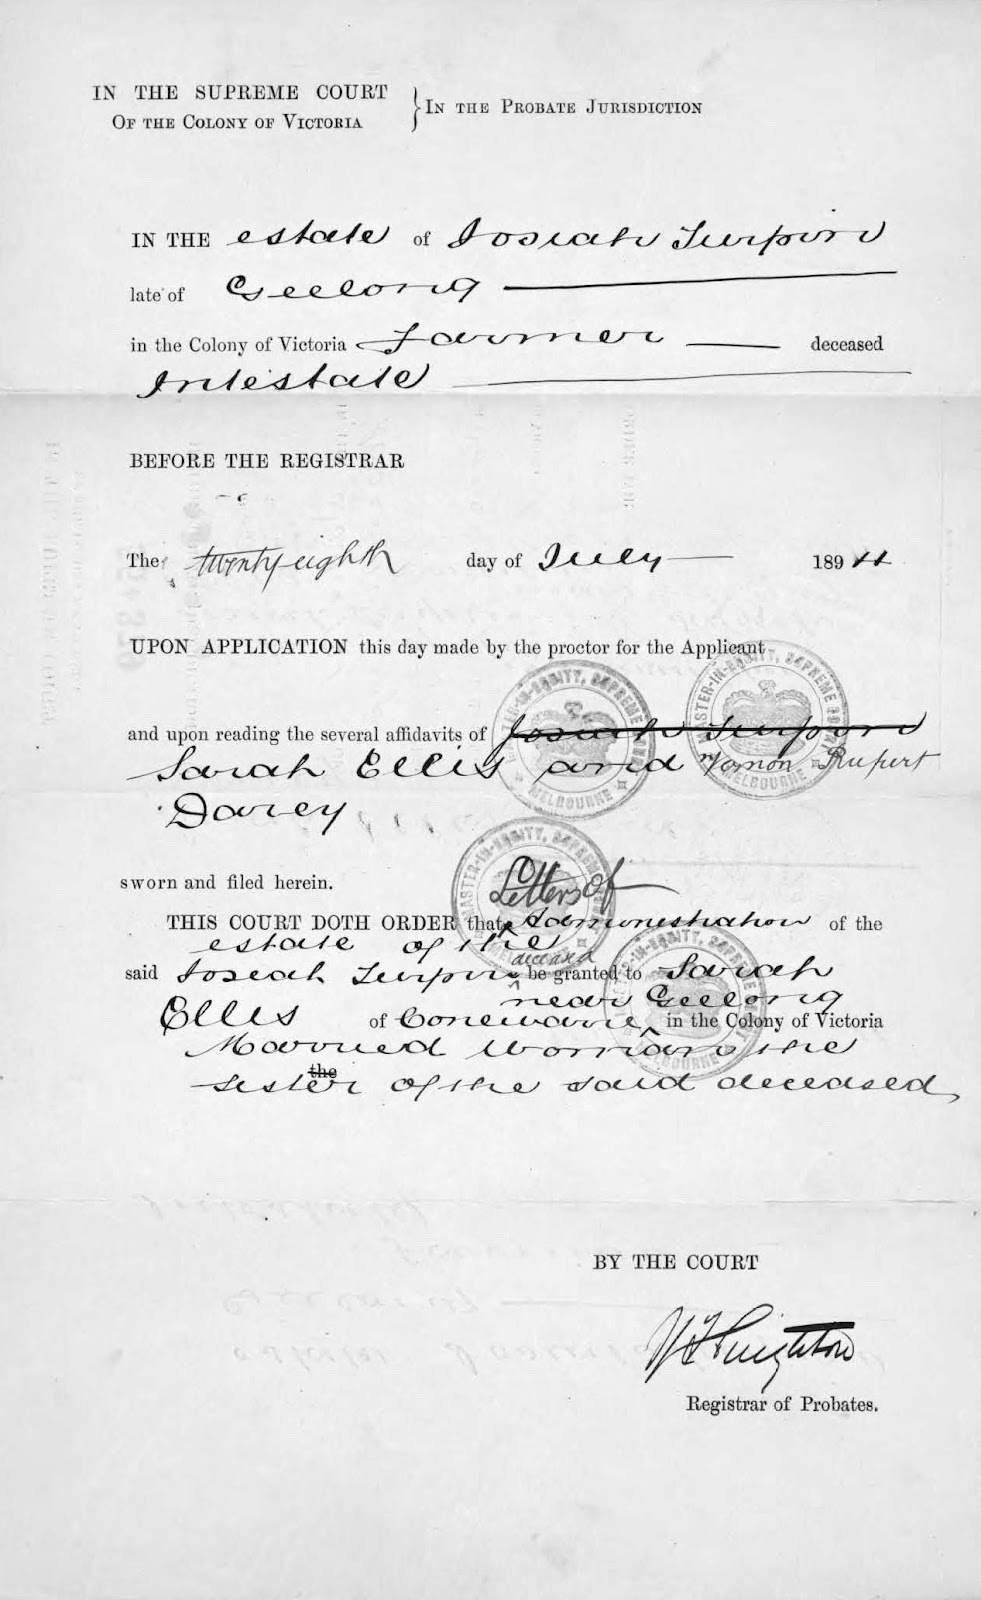 IN THE SUPREME COURT
OF THE COLONY OF VICTORIA
} IN THE PROBATE JURISDICTION
IN THE estate of Josiah Turpin
late of Geelong
in the Colony of Victoria Farmer deceased
Intestate
BEFORE THE REGISTRAR
The twenty eighth day of July 1894
UPON APPLICATION this day made by the proctor for the Applicant
and upon reading the several affidavits of Josiah Turpin
Sarah Ellis and Vernon Rupert
Darcy
sworn and filed herein.
Letters of
THIS COURT DOTH ORDER that Administration of the
estate of the
deceased
said Josiah Turpin be granted to Sarah
near Geelong
Ellis of Conewarre in the Colony of Victoria
Married Woman the
the
sister of the said deceased
BY THE COURT
Registrar of Probates.
MASTER-IN-EQUITY, SUPREME COURT
MELBOURNE